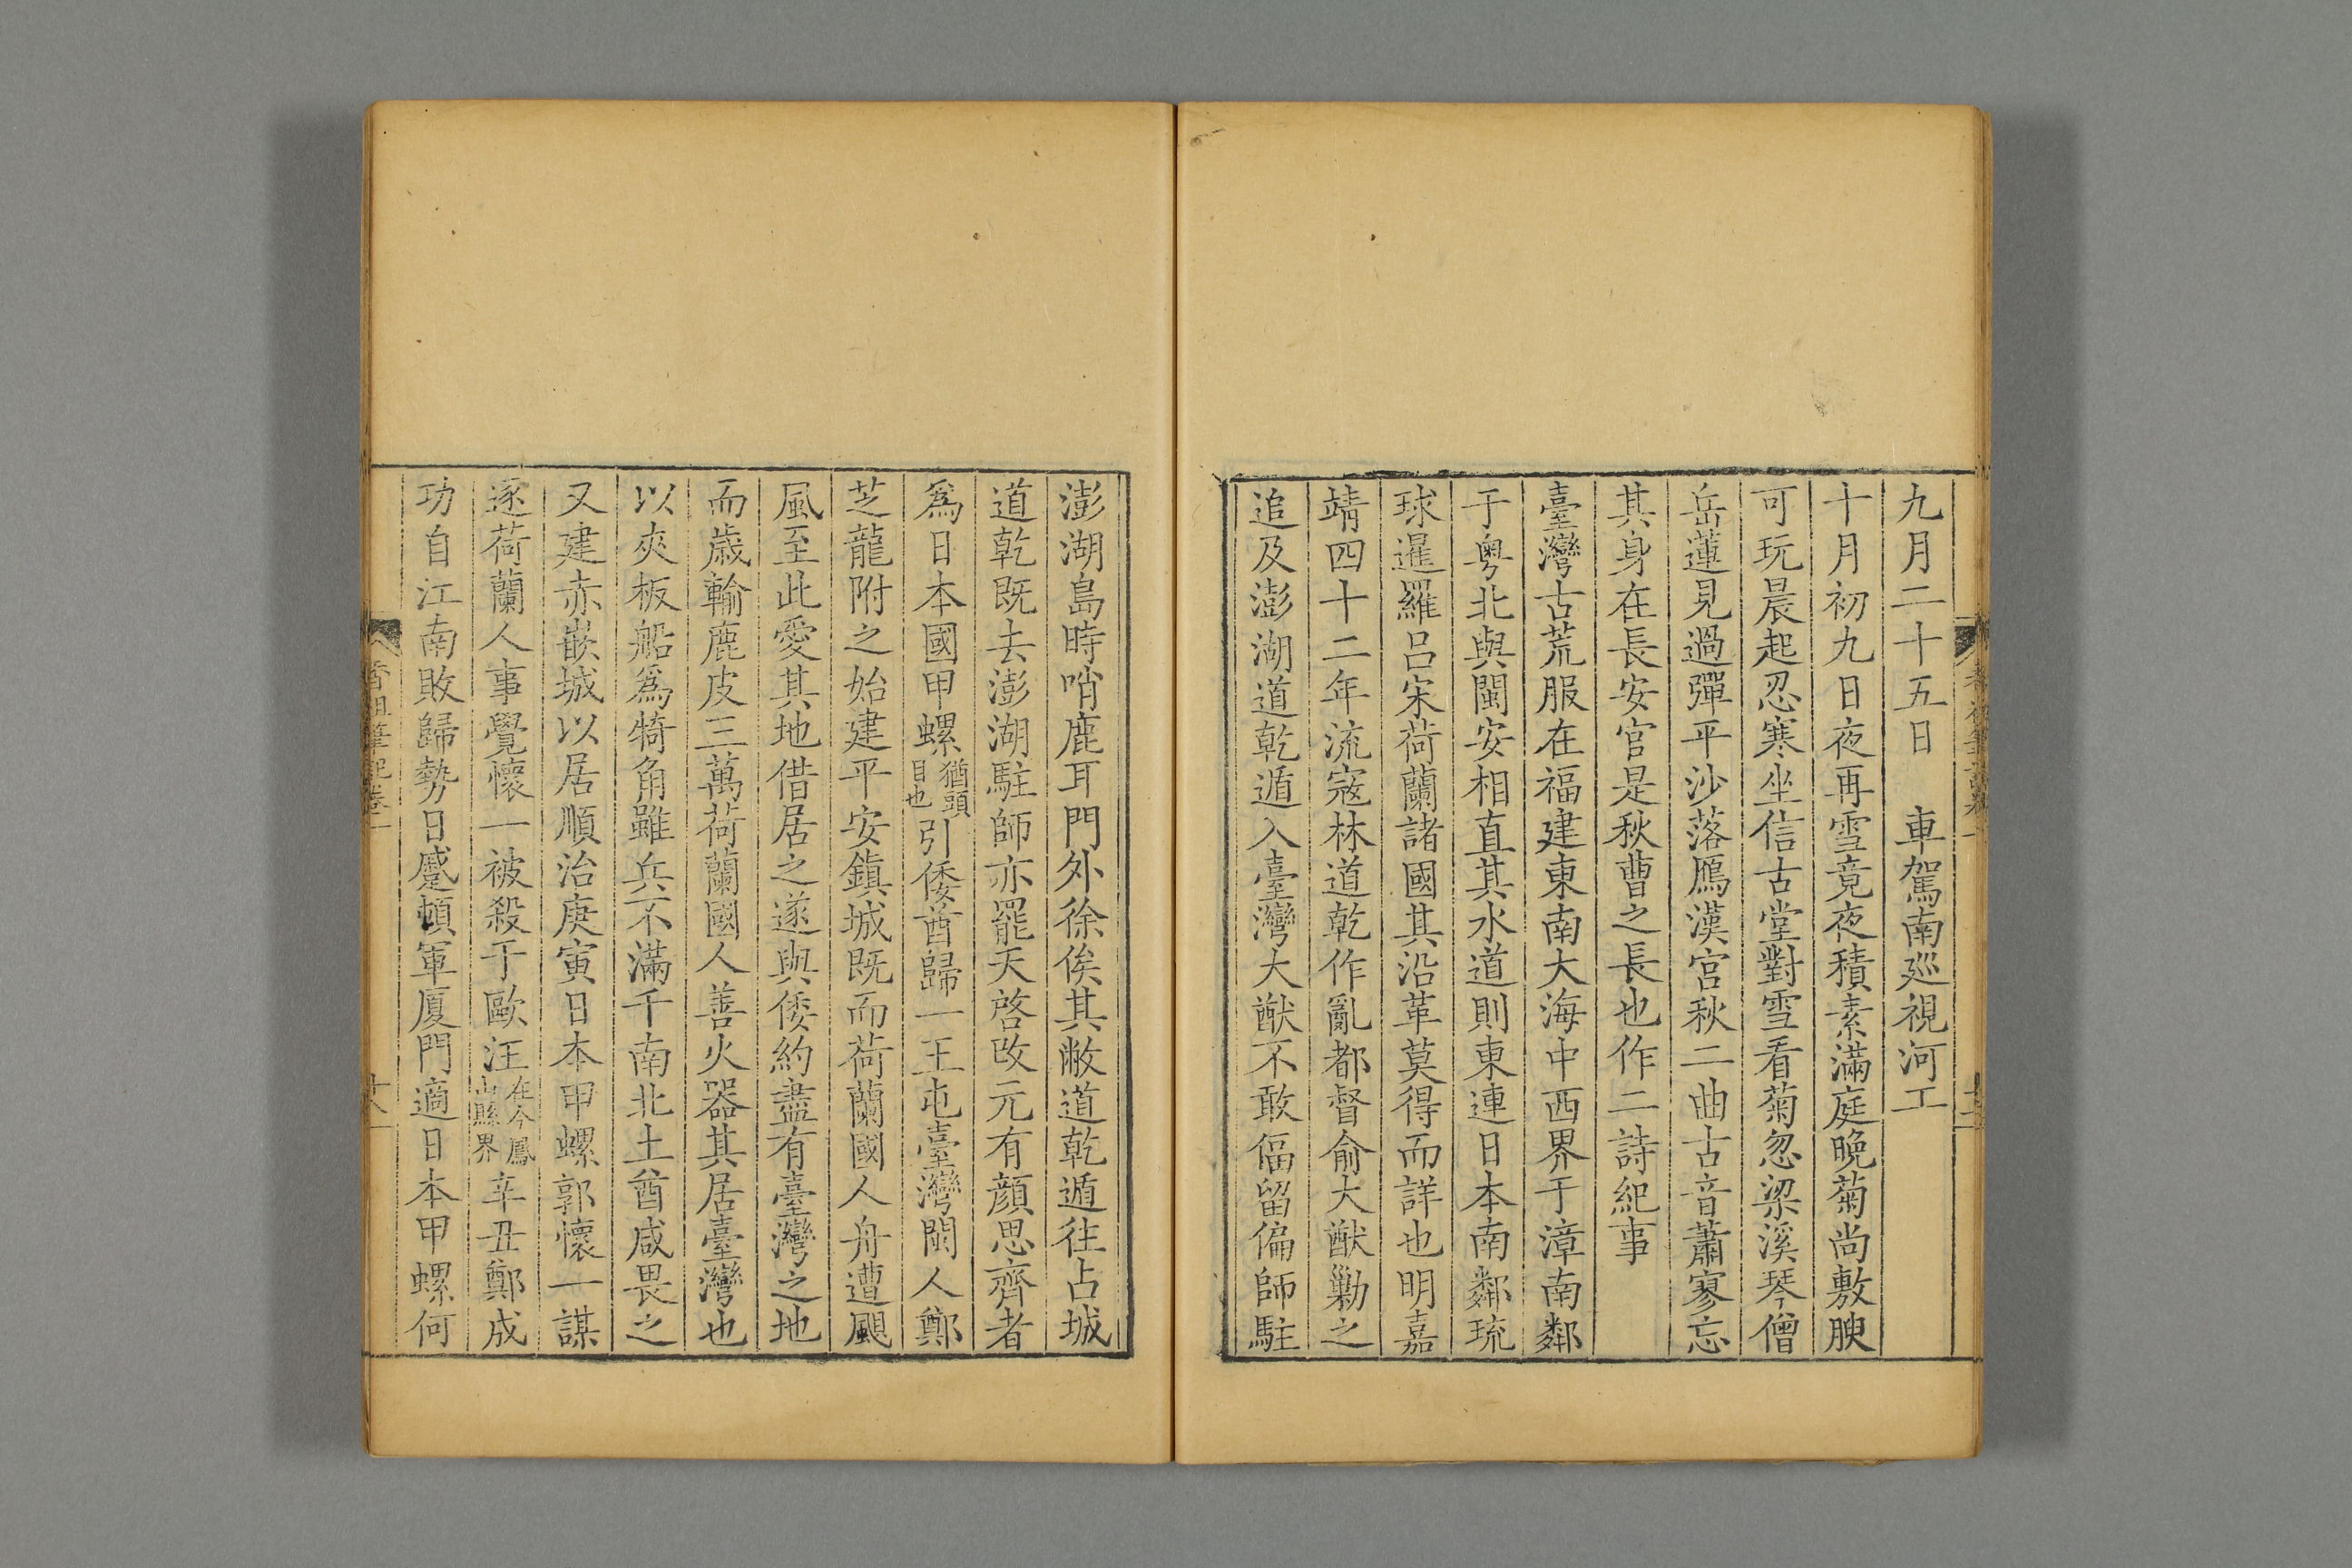 九月二十五日　車駕南巡視河工
十月初九日夜再雪竟夜積素滿庭晚菊尚敷腴
可玩晨起忍寒坐信古堂對雪看菊忽梁溪琴僧
岳蓮見過彈平沙落鴈漢宮秋二曲古音蕭寥忘
其身在長安官是秋曹之長也作二詩紀事
臺灣古荒服在福建東南大海中西界于漳南鄰
于粤北與閩安相直其水道則東連日本南鄰琉
球暹羅呂宋荷蘭諸國其沿革莫得而詳也明嘉
靖四十二年流寇林道乾作亂都督俞大猷勦之
追及澎湖道乾遁入臺灣大猷不敢偪留偏師駐
澎湖島時哨鹿耳門外徐俟其敝道乾遁往占城
道乾既去澎湖駐師亦罷天啓改元有顔思齊者
爲日本國甲螺猶頭目也引倭酋歸一王屯臺灣閩人鄭
芝龍附之始建平安鎮城既而荷蘭國人舟遭颶
風至此愛其地借居之遂與倭約盡有臺灣之地
而歲輸鹿皮三萬荷蘭國人善火器其居臺灣也
以夾板船爲犄角雖兵不滿千南北土酋咸畏之
又建赤嵌城以居順治庚寅日本甲螺郭懷一謀
逐荷蘭人事覺懷一被殺于歐汪在今鳳山縣界辛丑鄭成
功自江南敗歸勢日蹙頓軍厦門適日本甲螺何
香祖筆記卷一